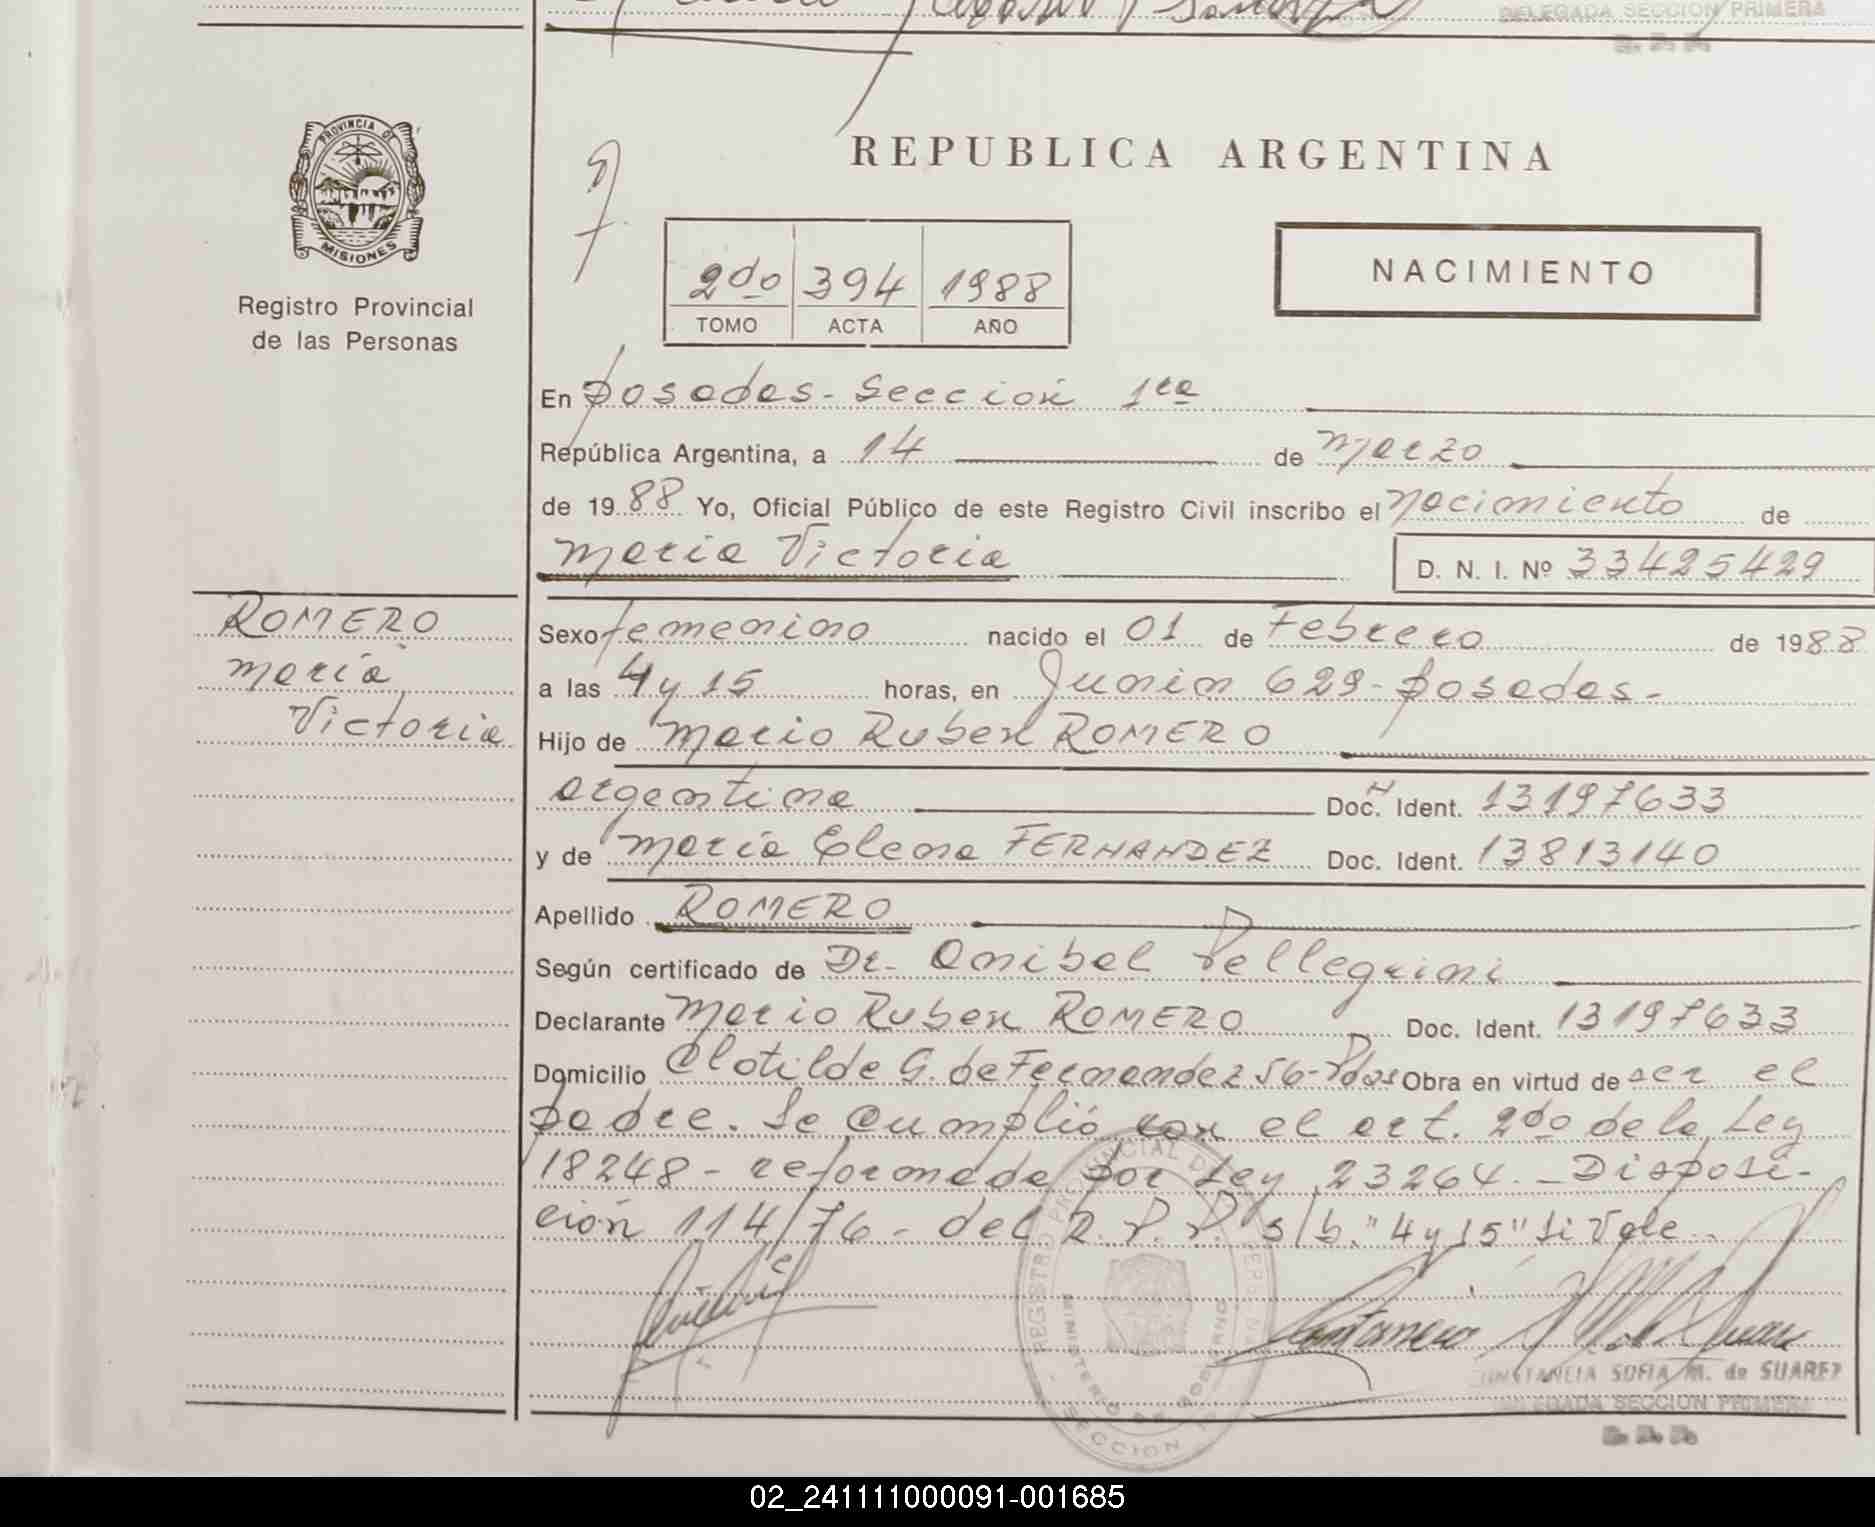 DELEGADA SECCION PRIMERA
R. P. P.
PROVINCIA DE
MISIONES
Registro Provincial
de las Personas
REPUBLICA ARGENTINA
2do 394 1988
TOMO ACTA AÑO
NACIMIENTO
En Posadas - Sección 1ra
República Argentina, a 14 de Marzo
de 1988 Yo, Oficial Público de este Registro Civil inscribo el Nacimiento de
María Victoria D. N. I. Nº 33425429
ROMERO
María
Victoria
Sexo femenino nacido el 01 de Febrero de 1988
a las 4 y 15 horas, en Junin 629 - Posadas -
Hijo de Mario Ruben ROMERO
argentina Doc. Ident. 13197633
y de María Elena FERNANDEZ Doc. Ident. 13813140
Apellido ROMERO
Según certificado de Dr. Anibal Pellegrini
Declarante Mario Ruben ROMERO Doc. Ident. 13197633
Domicilio Clotilde G. de Fernandez 56 - Pdas Obra en virtud de ser el
padre. Se cumplió con el art. 2do de la Ley
18248 - reformada por Ley 23264. - Disposi-
ción 114/76 - del R. P. P. s/b. "4 y 15" Si Vale
REGISTRO PROVINCIAL DE LAS PERSONAS
MINISTERIO DE GOBIERNO
SECCION 1ª
CONSTANCIA SOFIA M. de SUAREZ
DELEGADA SECCION PRIMERA
R. P. P.
02_241111000091-001685